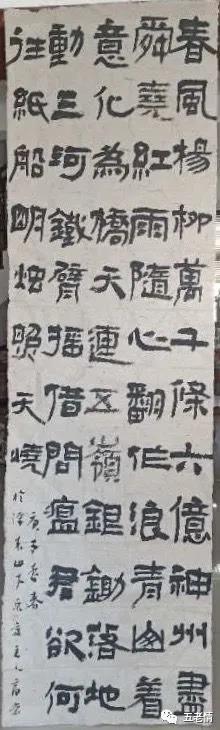 春風楊柳萬千條六億神州盡
舜堯紅雨隨心翻作浪青山着
意化為橋天連五嶺銀鋤落地
動三河鐵臂搖借問瘟君欲何
往紙船明烛照天燒
庚子孟春
五老情